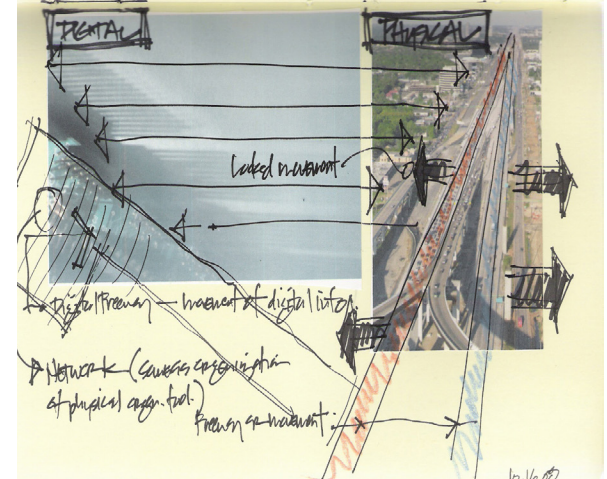 DIGITAL
PHYSICAL
Locked movement
Digital Freeway — movement of digital info.
NETWORK (organization
of physical
Freeway as movement: